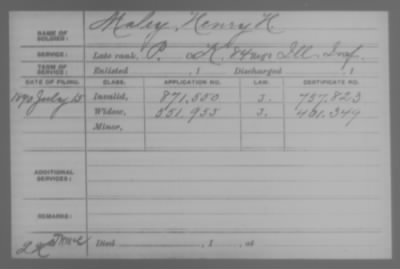 NAME OF SOLDIER: Maley, Henry H.
SERVICE: Late rank, P. Co K. 84 Reg't Ill. Inf.
TERM OF SERVICE: Enlisted , 1 Discharged , 1
DATE OF FILING. CLASS. APPLICATION NO. LAW. CERTIFICATE NO.
1890 July 15 Invalid, 871,550 J. 757,823
Widow, 551,955 J. 401,349
Minor,
ADDITIONAL SERVICES:
REMARKS:
Died , 1 , at